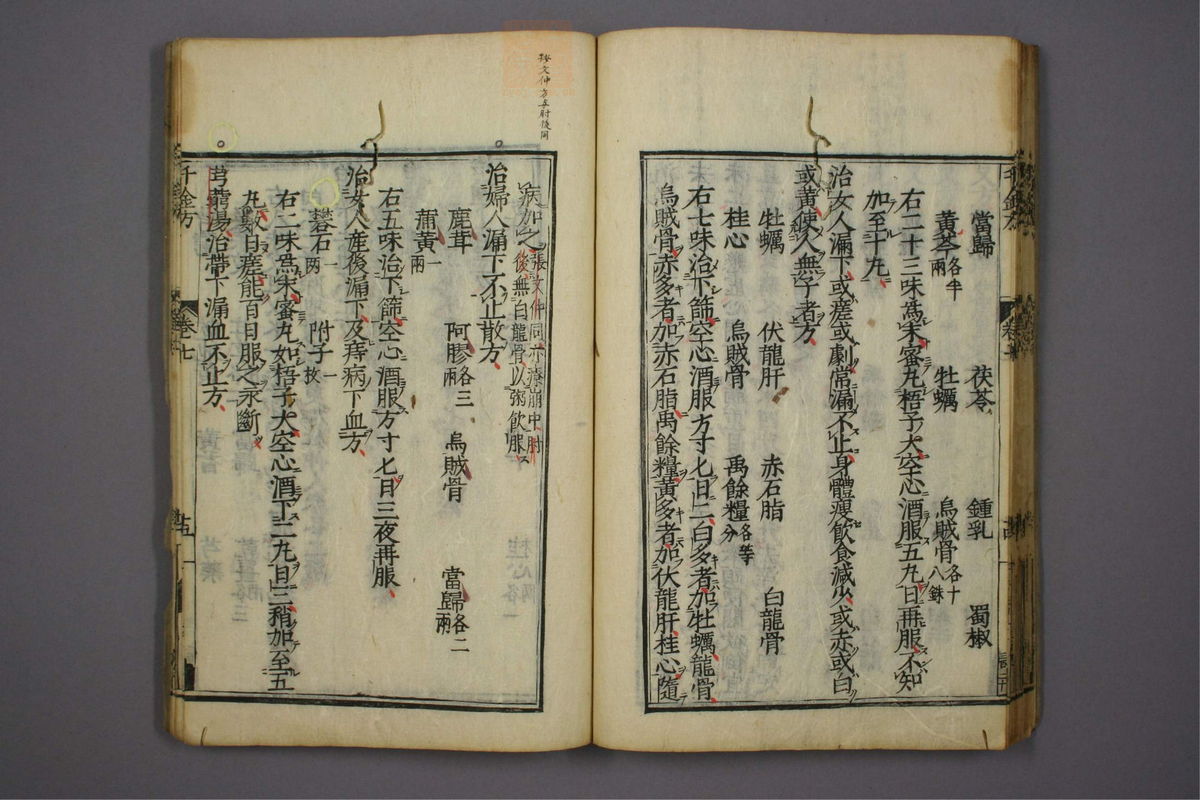 當歸 茯苓 鍾乳 蜀椒
黃芩各半兩 牡蠣 烏賊骨各十八銖
右二十三味為末蜜丸梧子大空心酒服五丸日再服不知
加至十丸
治女人漏下或瘥或劇常漏不止身體瘦飲食減少或赤或白
或黃使人無子者方
牡蠣 伏龍肝 赤石脂 白龍骨
桂心 烏賊骨 禹餘糧各等分
右七味治下篩空心酒服方寸匕日二白多者加牡蠣龍骨
烏賊骨赤多者加赤石脂禹餘糧黃多者加伏龍肝桂心隨
千金方 卷七
病加之張文仲同亦療崩中肘後無白龍骨以粥飲服
治婦人漏下不止散方
鹿茸 阿膠各三兩 烏賊骨 當歸各二兩
蒲黃一兩
右五味治下篩空心酒服方寸匕日三夜再服
治女人產後漏下及痔病下血方
礬石一兩 附子一枚
右二味為末蜜丸如梧子大空心酒下二丸日三稍加至五
丸數日瘥能百日服之永斷
芎藭湯治帶下漏血不止方
千金方 卷七